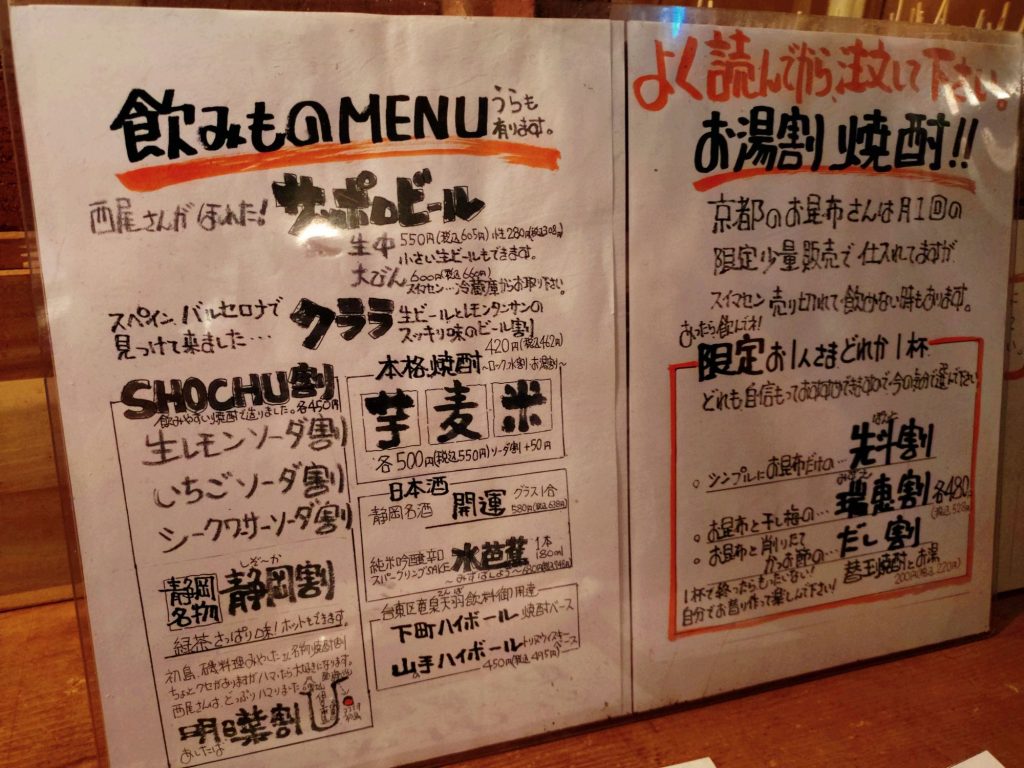 飲みものMENU
うらも
有ります。
西尾さんがほれた!
サッポロビール
生中 550円(税込605円) 小生280円(税込308円)
小さい生ビールもできます。
大びん 600円(税込660円)
スイマセン…冷蔵庫からお取り下さい。
スペイン、バルセロナで
見つけて来ました…
クララ
生ビールとレモンタンサンの
スッキリ味のビール割り
420円(税込462円)
SHOCHU割
飲みやすい焼酎で造りました。各450円
生レモンソーダ割
いちごソーダ割
シークワーサーソーダ割
静岡
名物
しぞーか
静岡割
緑茶さっぱり味!ホットもできます。
初島、磯料理みやした
名物焼酎割
ちょとクセがありますがハマったら大好きになります。
西尾さんは、どっぷりハマりました
明日葉割
あしたば
初島
本格焼酎
~ロック・水割・お湯割~
芋 麦 米
各500円(税込550円)ソーダ割+50円
日本酒
静岡名酒 開運 グラス1合
580円(税込638円)
純米吟醸辛口
スパークリングSAKE
水芭蕉
1本
180ml
~みずばしょう~
台東区竜泉天羽飲料御用達
下町ハイボール 焼酎ベース
山手ハイボール トリスウイスキー
ベース
450円(税込495円)
よく読んでから、注文して下さい。
お湯割焼酎!!
京都のお昆布さんは月1回の
限定少量販売で仕入れてますが
スイマセン 売り切れて飲めない時もあります。
あったら飲んでネ!
限定お1人さまどれか1杯
どれも、自信もっておすすめできますので、今の気分で選んで下さい
シンプルにお昆布だけの…
お昆布と干し梅の… 瑞恵割
各480
(税込528円)
お昆布と削りたて
かつお節の… だし割
替玉焼酎とお湯
200円(税込220円)
1杯で終ったらもったいない!
自分でお替り作って楽しんで下さい!